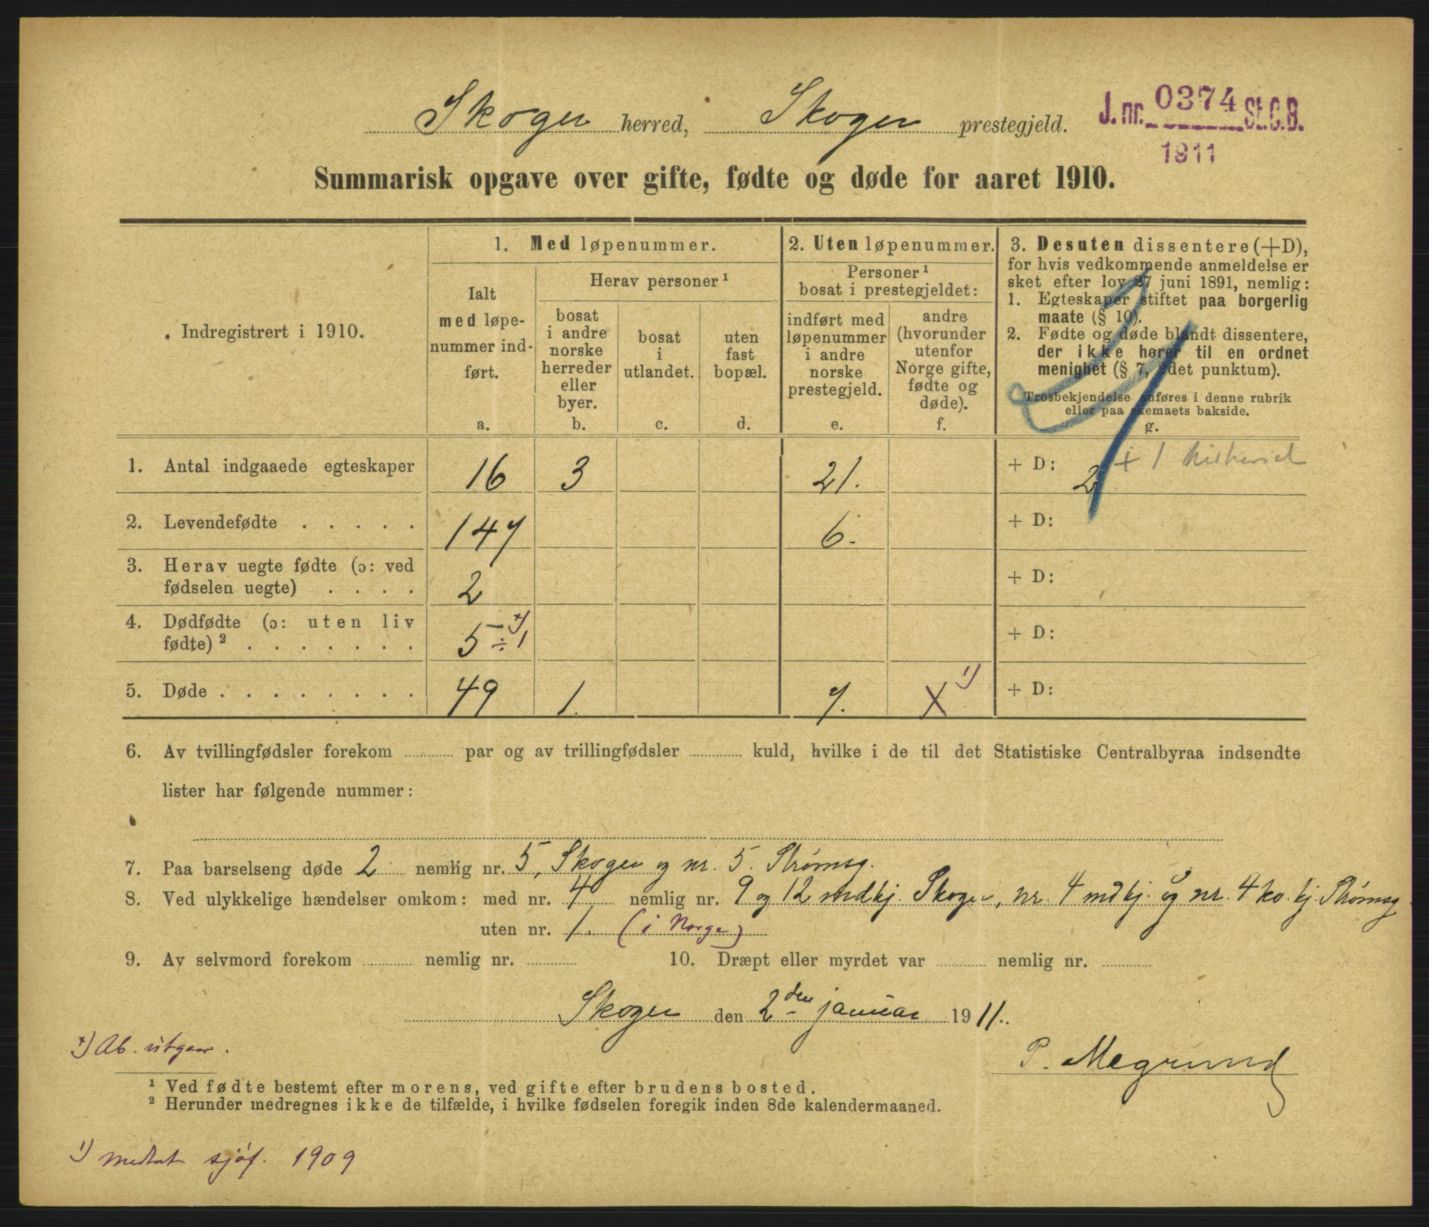 Skoger herred, Skoger prestegjeld.
J. nr. 0374 St.C.B.
1911
Summarisk opgave over gifte, fødte og døde for aaret 1910.
Indregistrert i 1910.
1. Med løpenummer.
Ialt med løpenummer indført.
a.
Herav personer ¹
bosat i andre norske herreder eller byer.
b.
bosat i utlandet.
c.
uten fast bopæl.
d.
2. Uten løpenummer.
Personer ¹ bosat i prestegjeldet:
indført med løpenummer i andre norske prestegjeld.
e.
andre (hvorunder utenfor Norge gifte, fødte og døde).
f.
3. Desuten dissentere (+D),
for hvis vedkommende anmeldelse er
sket efter lov 27 juni 1891, nemlig:
1. Egteskaper stiftet paa borgerlig
maate (§ 10).
2. Fødte og døde blandt dissentere,
der ikke hører til en ordnet
menighet (§ 7, 2det punktum).
Trosbekjendelse anføres i denne rubrik
eller paa skemaets bakside.
g.
1. Antal indgaaede egteskaper 16 3 21. + D: 2 + 1
2. Levendefødte . . . . . 147 6. + D:
3. Herav uegte fødte (ɔ: ved
fødselen uegte) . . . . 2 + D:
4. Dødfødte (ɔ: uten liv
fødte) ² . . . . . . . 5 ÷ 1 +) + D:
5. Døde . . . . . . . . 49 1. 7. X ¹) + D:
6. Av tvillingfødsler forekom par og av trillingfødsler kuld, hvilke i de til det Statistiske Centralbyraa indsendte
lister har følgende nummer:
7. Paa barselseng døde 2 nemlig nr. 5, Skoger og nr. 5. Strømsg.
8. Ved ulykkelige hændelser omkom: med nr. 4 nemlig nr. 9 og 12 mdkj. Skoger, nr. 4 mdkj. og nr. 4 ko. kj. Strømsg.
uten nr. 1. (i Norge)
9. Av selvmord forekom nemlig nr. 10. Dræpt eller myrdet var nemlig nr.
Skoger den 2den januar 1911.
+) Ab. utgaar.
P. Megrund
¹ Ved fødte bestemt efter morens, ved gifte efter brudens bosted.
² Herunder medregnes ikke de tilfælde, i hvilke fødselen foregik inden 8de kalendermaaned.
¹) medtat sjøf. 1909